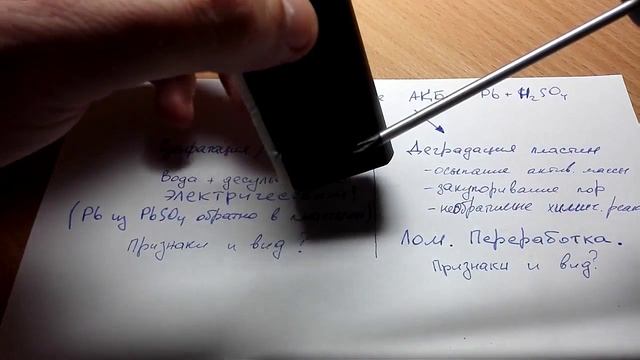 АКБ Pb + H₂SO₄
Сульфатация
Вода + десуль
электричеством!
(Pb из PbSO₄ обратно в пластины)
Признаки и вид?
Деградация пластин
- осыпание актив. массы
- закупоривание пор
- необратимые химич. реак
Лом. Переработка.
Признаки и вид?